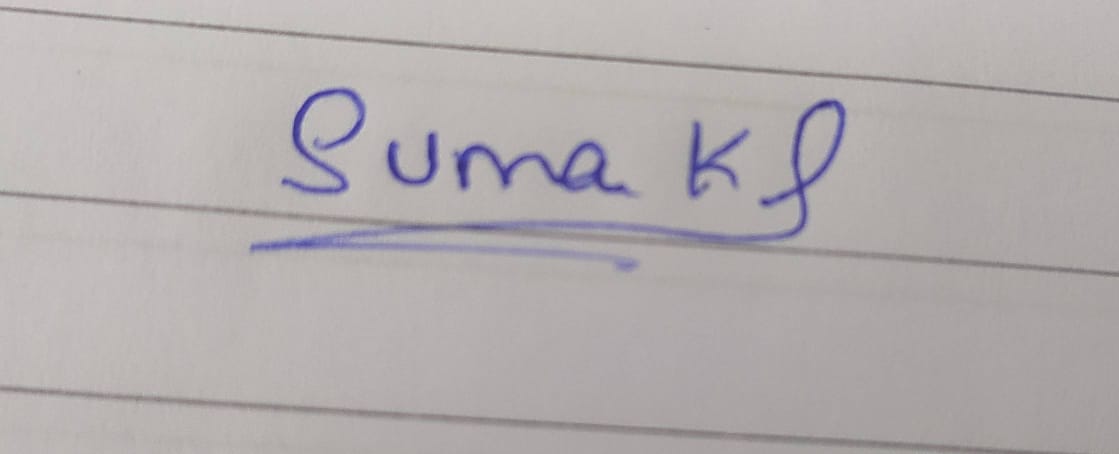 Suma K S